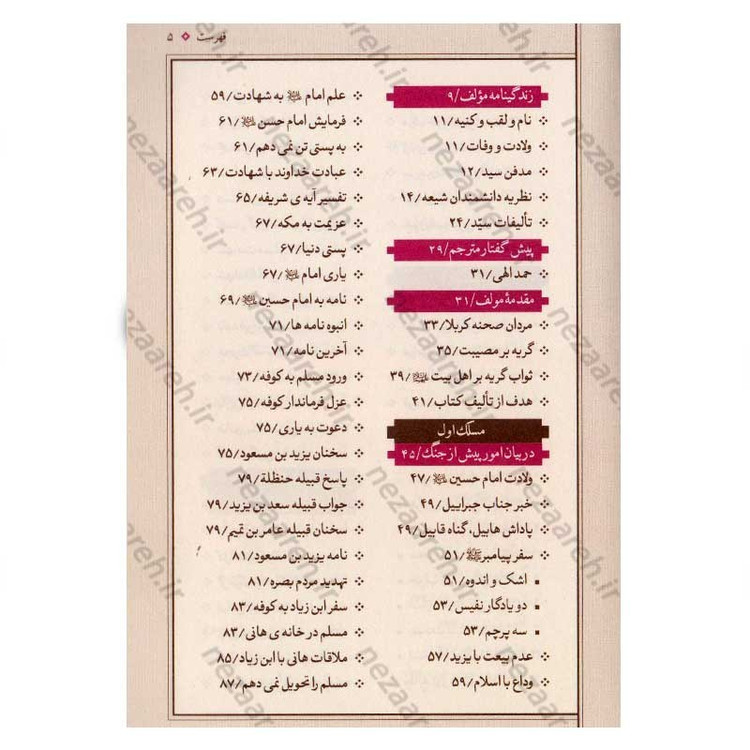 فهرست ۵
زندگینامه مؤلف/۹
نام و لقب و کنیه/۱۱
ولادت و وفات/۱۱
مدفن سید/۱۲
نظریه دانشمندان شیعه/۱۴
تألیفات سیّد/۲۴
پیش گفتار مترجم/۲۹
حمد الهی/۳۱
مقدمهٔ مولف/۳۱
مردان صحنه کربلا/۳۳
گریه بر مصیبت/۳۵
ثواب گریه بر اهل بیت/۳۹
هدف از تألیف کتاب/۴۱
مسلک اول
در بیان امور پیش از جنگ/۴۵
ولادت امام حسین/۴۷
خبر جناب جبراییل/۴۹
پاداش هابیل، گناه قابیل/۴۹
سفر پیامبر ﷺ/۵۱
اشک و اندوه/۵۱
دو یادگار نفیس/۵۳
سه پرچم/۵۳
عدم بیعت با یزید/۵۷
وداع با اسلام/۵۹
علم امام به شهادت/۵۹
فرمایش امام حسن/۶۱
به پستی تن نمی دهم/۶۱
عبادت خداوند با شهادت/۶۳
تفسیر آیه ی شریفه/۶۵
عزیمت به مکه/۶۷
پستی دنیا/۶۷
یاری امام/۶۷
نامه به امام حسین/۶۹
انبوه نامه ها/۷۱
آخرین نامه/۷۱
ورود مسلم به کوفه/۷۳
عزل فرماندار کوفه/۷۵
دعوت به یاری/۷۵
سخنان یزید بن مسعود/۷۵
پاسخ قبیله حنظلة/۷۹
جواب قبیله سعد بن یزید/۷۹
سخنان قبیله عامر بن تمیم/۷۹
نامه یزید بن مسعود/۸۱
تهدید مردم بصره/۸۱
سفر ابن زیاد به کوفه/۸۳
مسلم در خانه ی هانی/۸۳
ملاقات هانی با ابن زیاد/۸۵
مسلم را تحویل نمی دهم/۸۷
nezaareh.ir